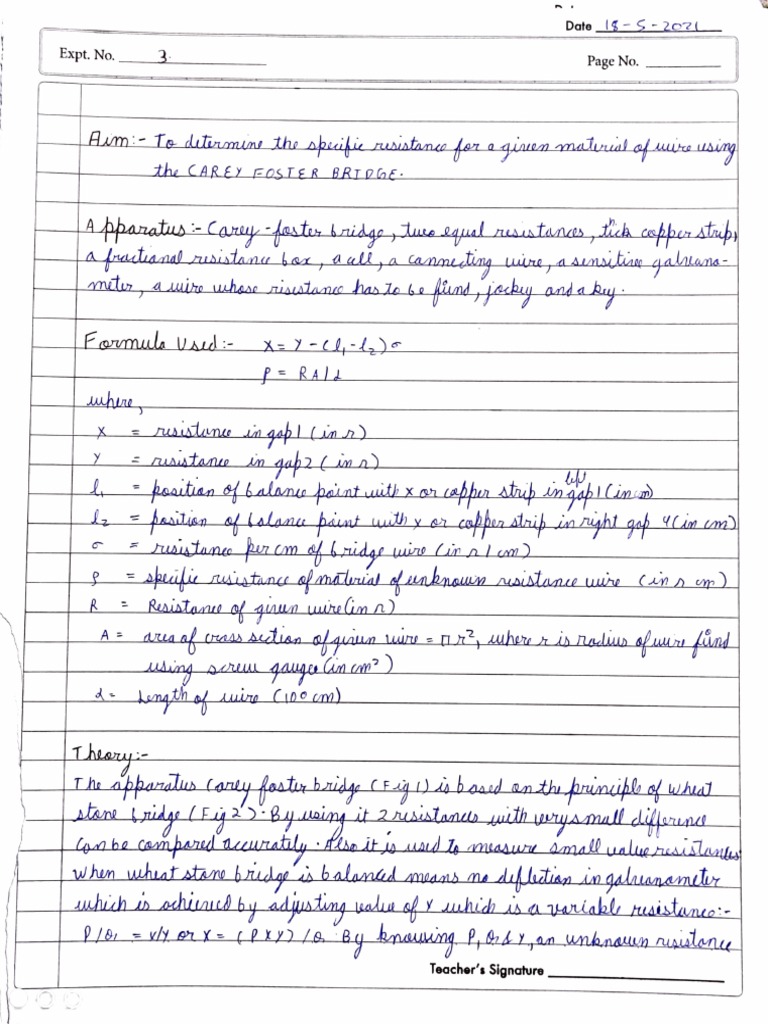 Date 18-5-2021
Expt. No. 3.
Page No.
Aim:- To determine the specific resistance for a given material of wire using
the CAREY FOSTER BRIDGE.
Apparatus:- Carey-foster bridge, two equal resistances, thick copper strip,
a fractional resistance box, a cell, a connecting wire, a sensitive galvano-
meter, a wire whose risistance has to be found, jockey and a key.
Formula Used:- X = Y - (l₁-l₂)σ
ρ = RA/L
where,
X = resistance in gap1 (in Ω)
Y = resistance in gap2 (in Ω)
l₁ = position of balance point with x or copper strip in left gap 1 (in cm)
l₂ = position of balance point with x or copper strip in right gap 4 (in cm)
σ = resistance per cm of bridge wire (in Ω/cm)
ρ = specific resistance of material of unknown resistance wire (in Ω cm)
R = Resistance of given wire (in Ω)
A = area of cross section of given wire = πr², where r is radius of wire found
using screw gauge (in cm²)
L = Length of wire (100 cm)
Theory:-
The apparatus Carey foster bridge (Fig 1) is based on the principle of wheat
stone bridge (Fig 2). By using it 2 resistances with very small difference
can be compared accurately. Also it is used to measure small value resistances
When wheat stone bridge is balanced means no deflection in galvanometer
which is achieved by adjusting value of Y which is a variable resistance:-
P/Q = X/Y or X = (P X Y) / Q. By knowing P, Q & Y, an unknown resistance
Teacher's Signature